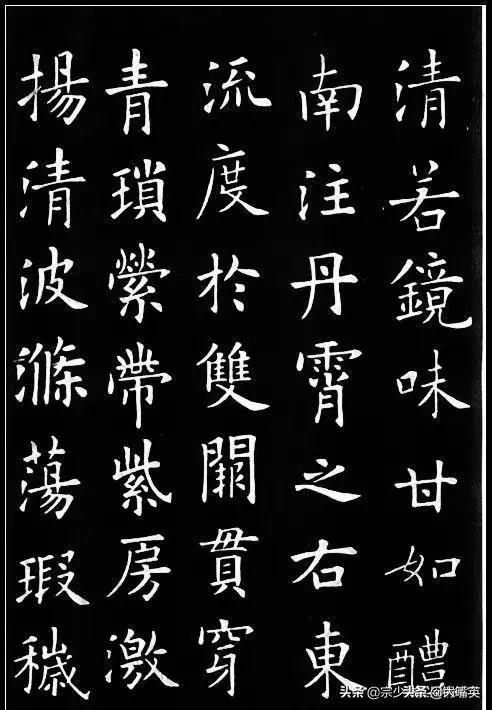 清若鏡味甘如醴
南注丹霄之右東
流度於雙闕貫穿
青瑣縈帶紫房激
揚清波滌蕩瑕穢
头条@宗少